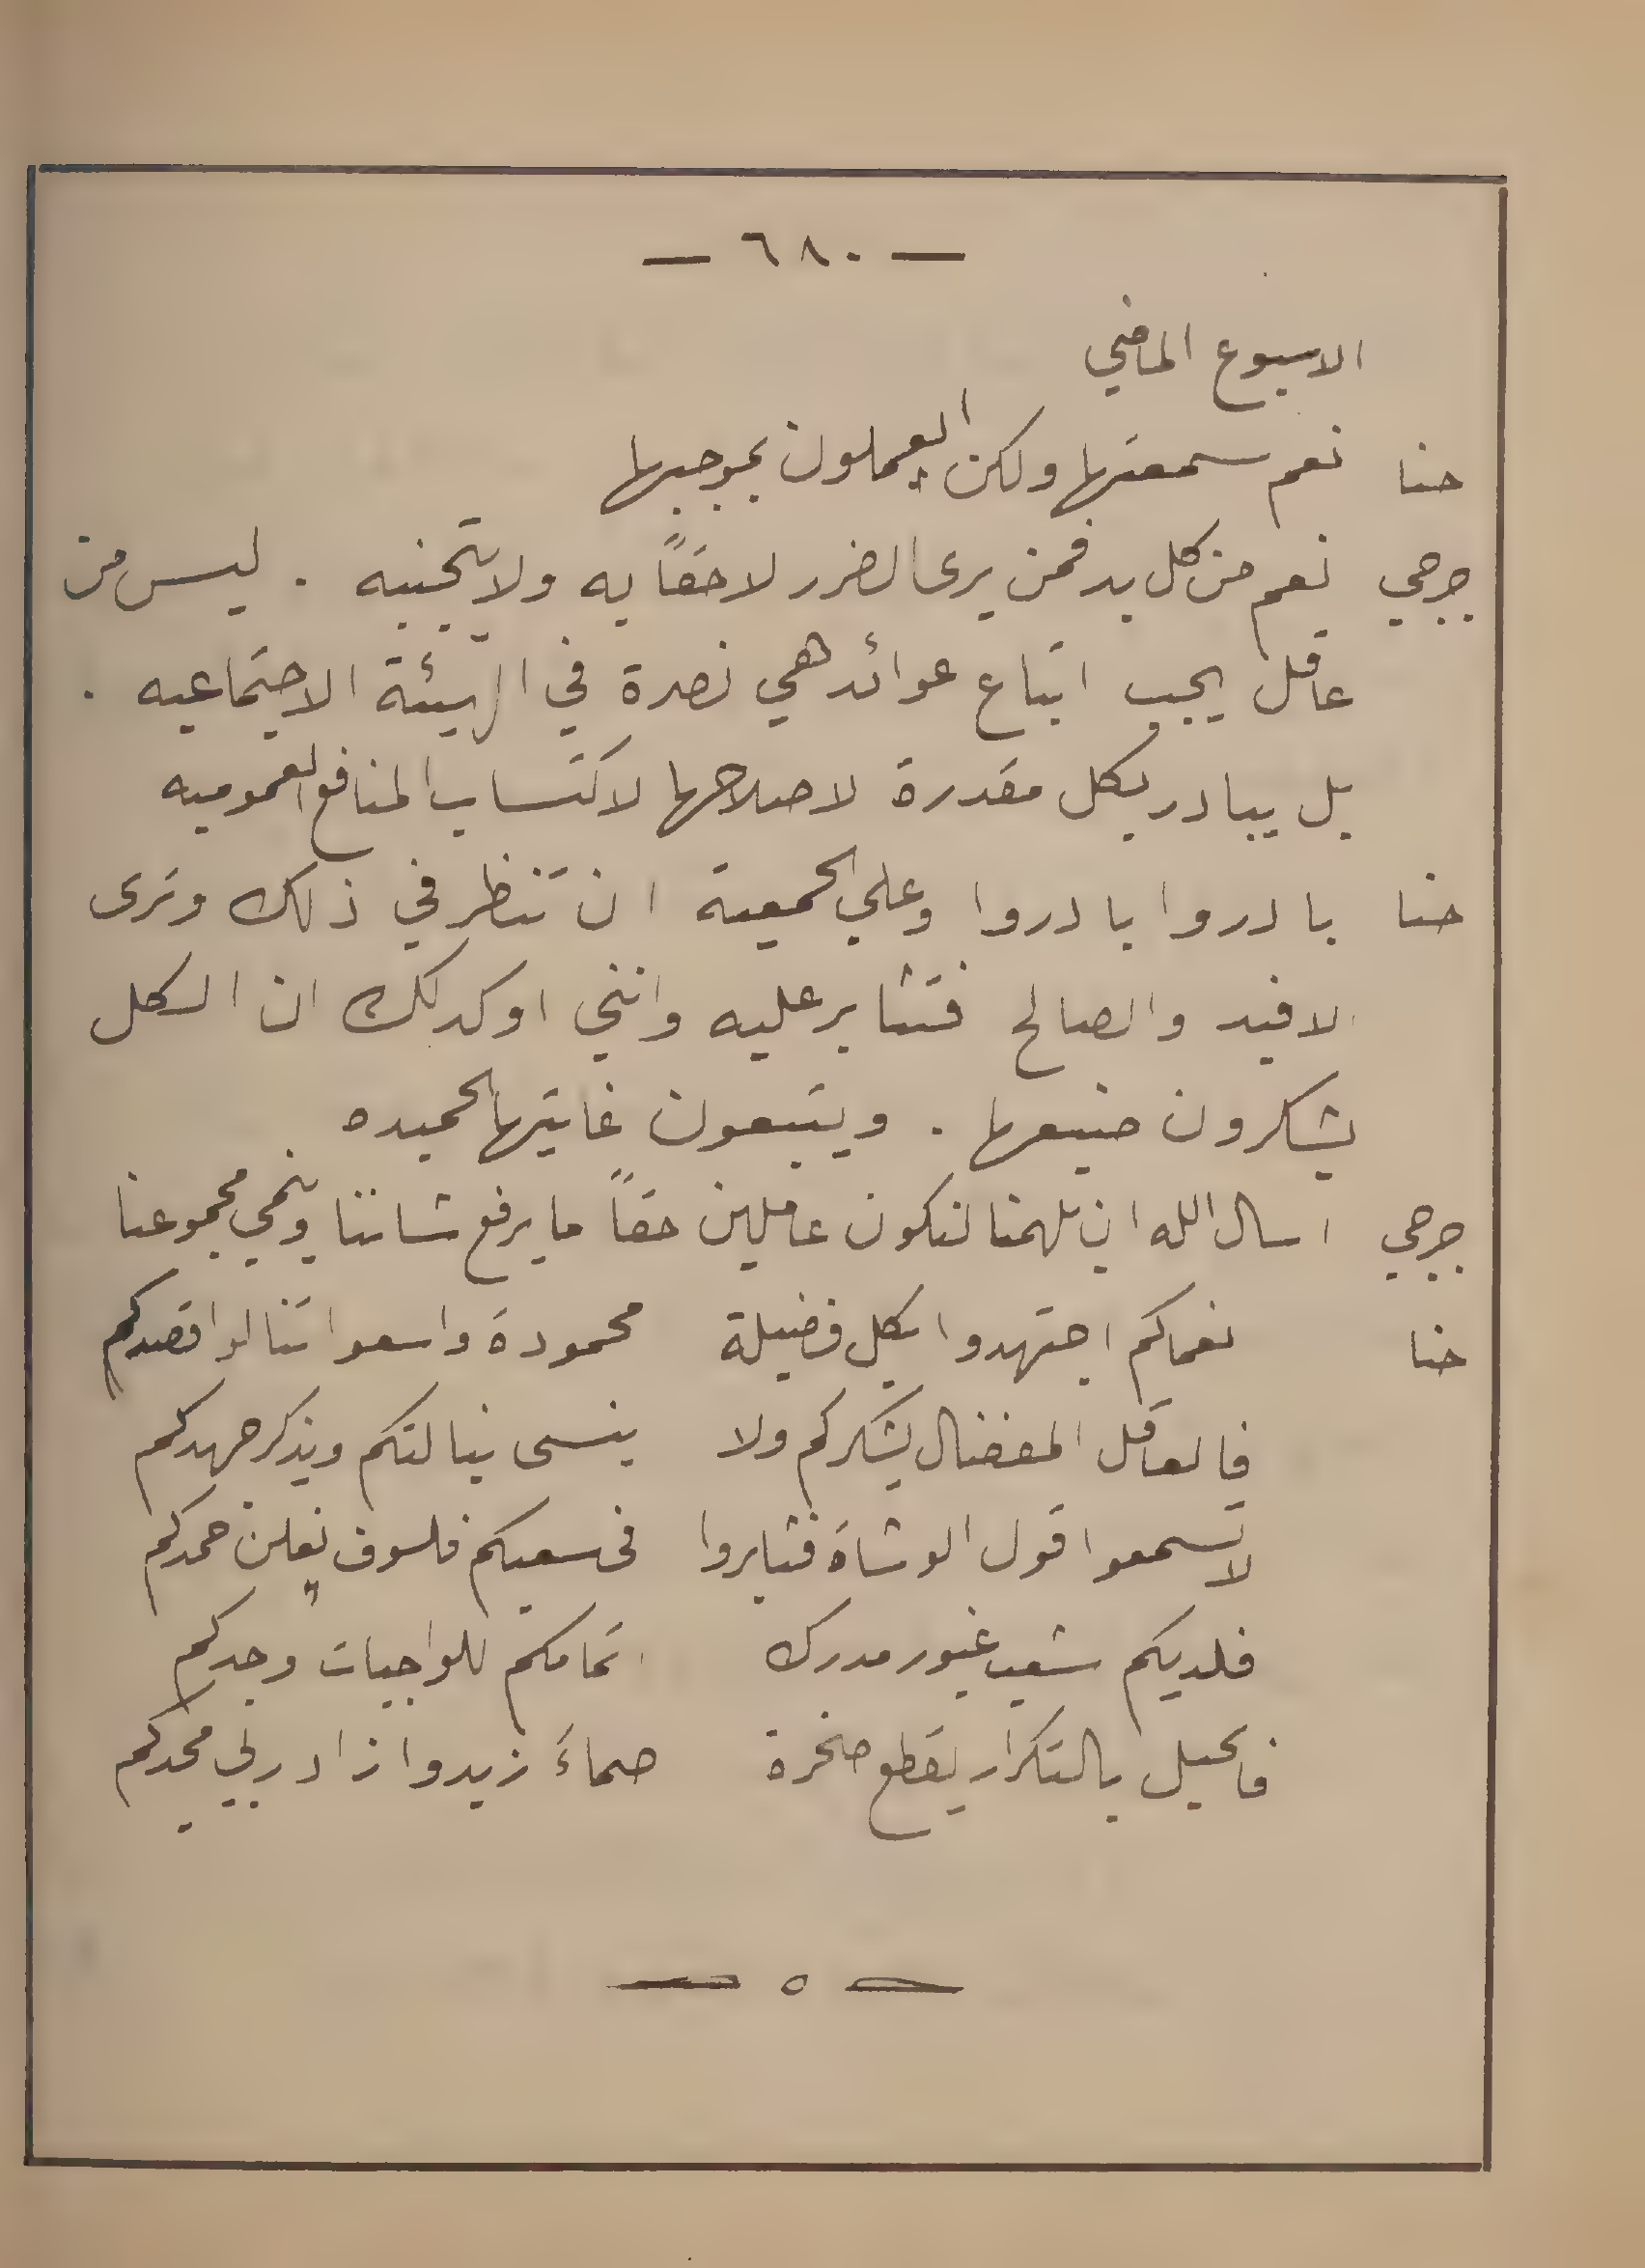 — ٦٨٠ —
الاسبوع الماضي
حنا نعم سمعتها ولكن ايعملون بموجبها
جرجي نعم من كل بد فمن يرى الضرر لاحقاً به ولا يتجنبه . ليس من
عاقل يجب اتباع عوائد هي نصرة في الهيئة الاجتماعيه .
بل يبادر بكل مقدرة لاصلاحها لاكتساب المنافع العموميه
حنا بادروا بادروا وعلي الجمعية ان تنظر في ذلك وترى
الافيد والصالح فتثابر عليه وانني اوكد لك ان الكل
يشكرون صنيعها . ويتبعون غايتها الحميده
جرجي اسال الله ان يلهمنا لنكون عاملين حقاً ما يرفع شاننا وينمي مجموعنا
حنا نعماكم اجتهدوا بكل فضيلة محمودة واسعوا تنالوا قصدكم
فالعاقل المفضال يشكركم ولا ينسى نبالتكم ويذكر جهدكم
لا تسمعوا قول الوشاة فثابروا في سعيكم فلسوف نعلن حمدكم
فلديكم شعب غيور مدرك اتمامكم للواجبات وجدكم
فالحبل بالتكرار يقطع صخرة صماءَ زيدوا زاد ربي مجدكم
— ٥ —